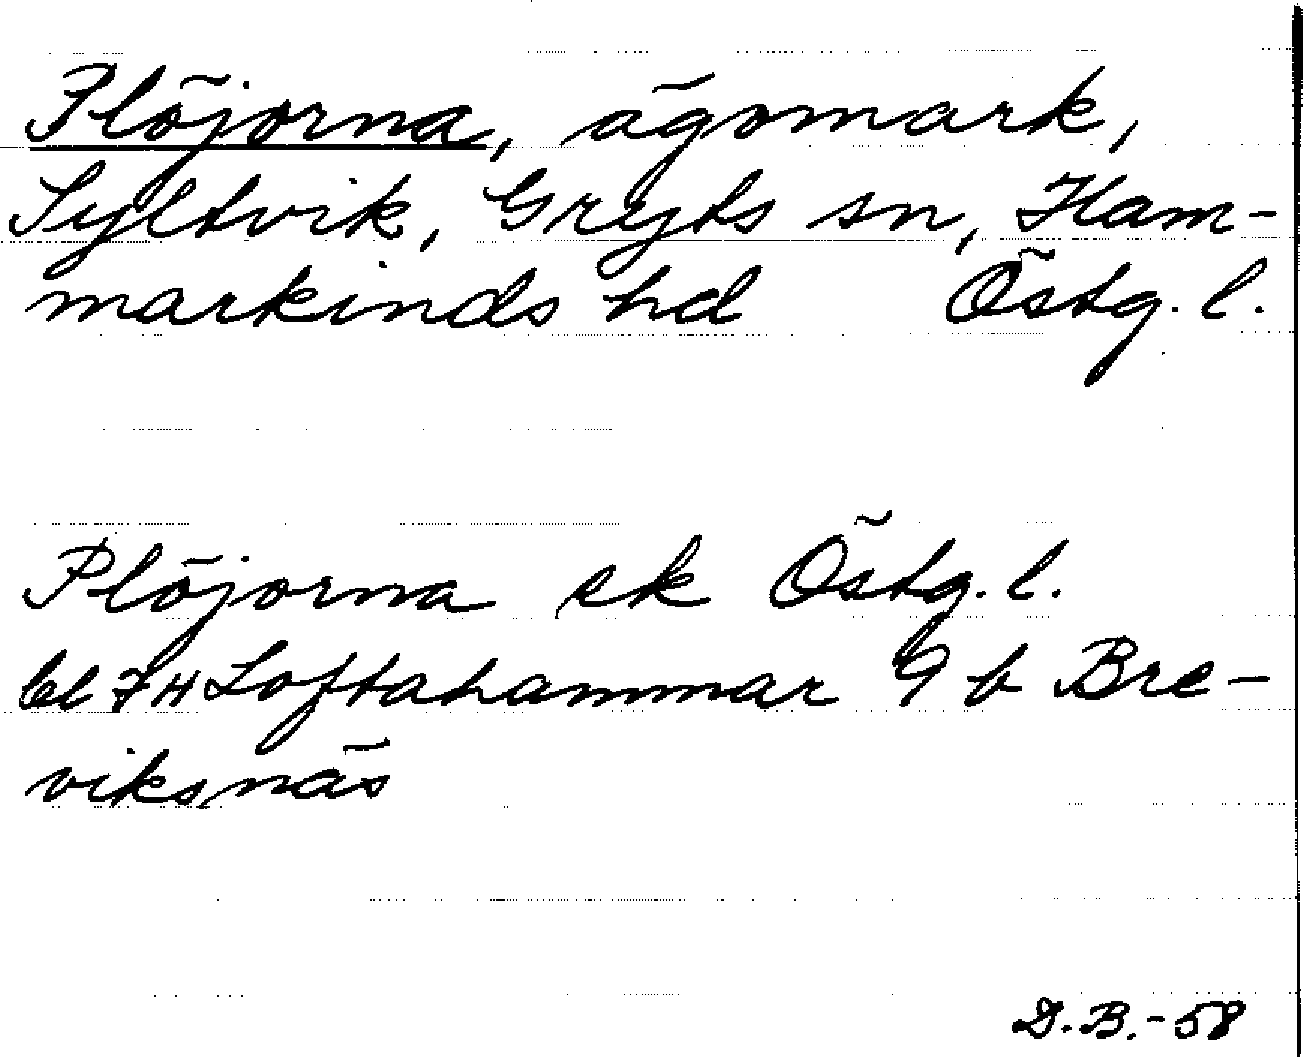 Plöjorna, ägomark,
Syltvik, Gryts sn, Ham-
markinds hd Östg. l.
Plöjorna ek Östg. l.
bl 7H Loftahammar 9 b Bre-
viksnäs
D.B.-58